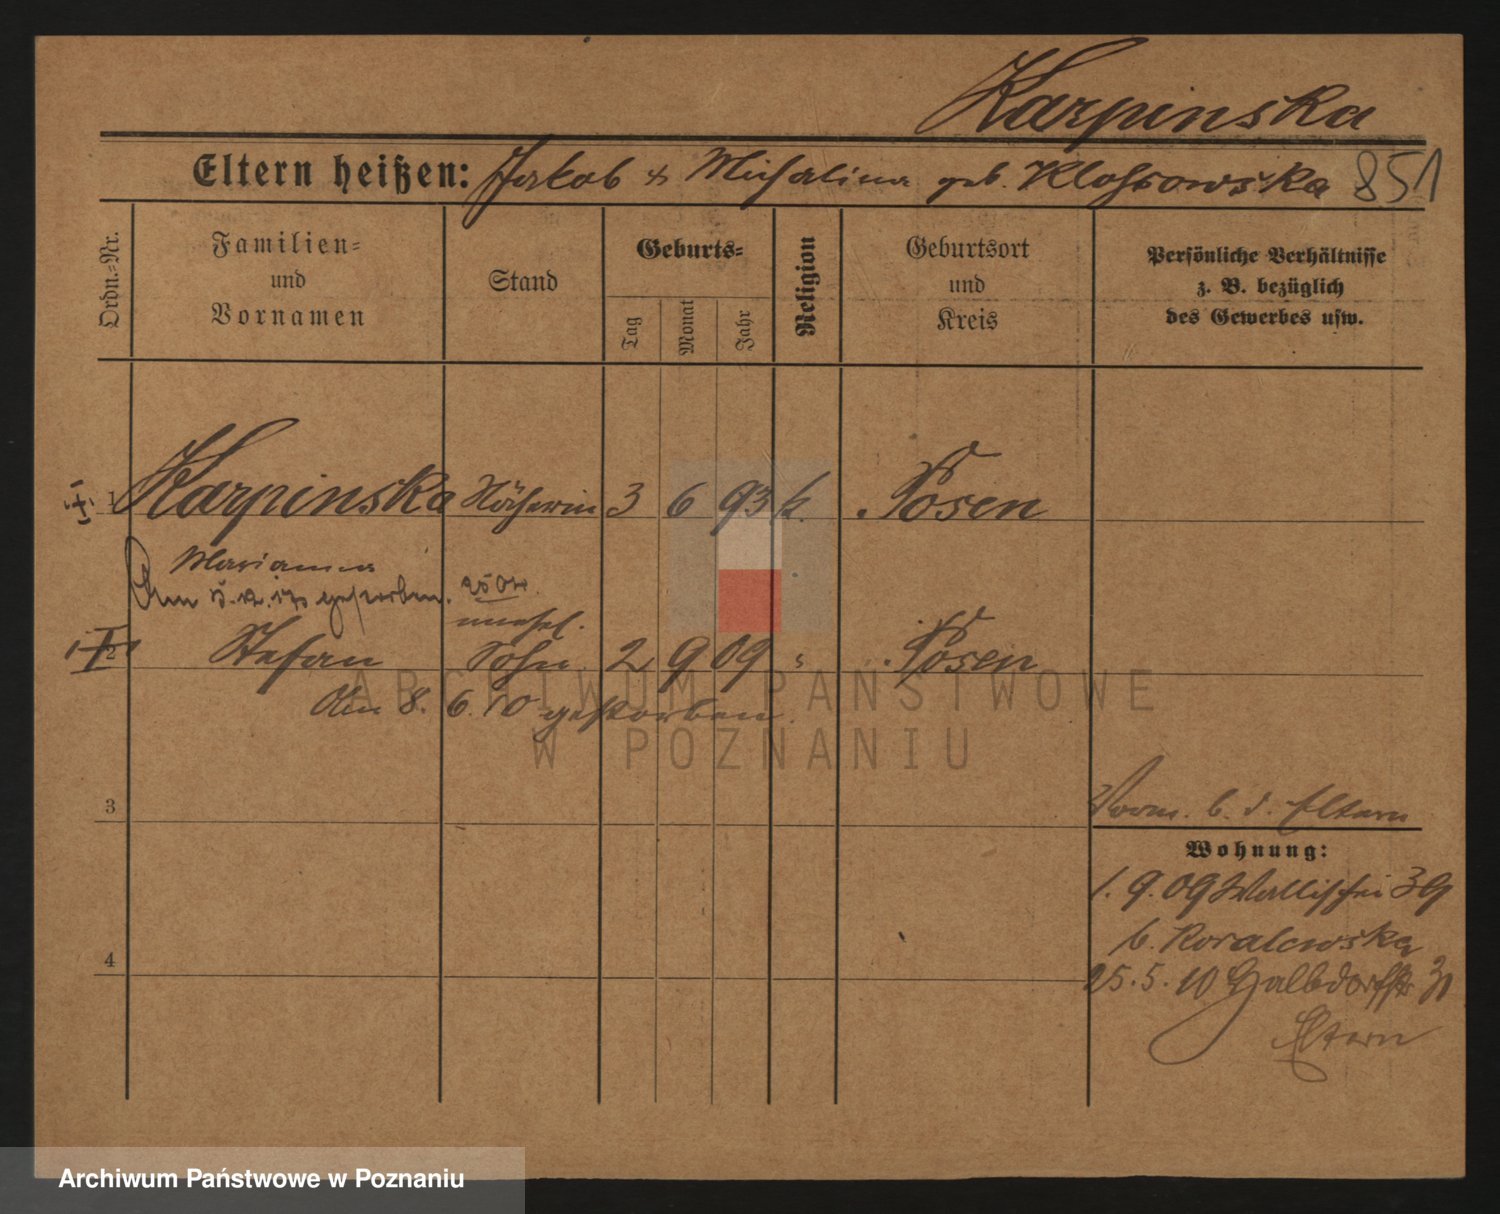 Karpinska
Eltern heißen: Jakob & Michalina geb. Klossowska 851
Ordn.=Nr.
Familien=
und
Vornamen
Stand
Geburts=
Tag
Monat
Jahr
Religion
Geburtsort
und
Kreis
Persönliche Verhältnisse
z. B. bezüglich
des Gewerbes usw.
1 Karpinska Näherin 3 6 93 k. Posen
Marianna
Am gestorben.
unehel.
2 Stefan Sohn 2 9 09 " Posen
Am 8. 6. 10 gestorben.
ARCHIWUM PAŃSTWOWE
W POZNANIU
3
Vorm. b. d. Eltern
Wohnung:
1. 9. 09 Wallischei 39
b. Kovalewska
4
25. 5. 10 Halbdorfstr 31
Eltern
Archiwum Państwowe w Poznaniu